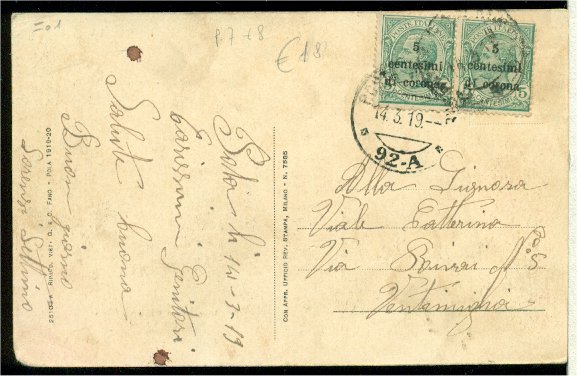 =01
p 7 + 8
€ 18
POSTE ITALIANE
5
centesimi
di corona
5
centesimi
di corona
5
14.3.19.
92-A
Pola li 14-3-19
Carissimi Genitori
Salute buona
Buon giorno
Lorenzi
25105-A RIPROD. VIET. G. & C. FANO - POLA 1919-20
CON APPR. UFFICIO REV. STAMPA, MILANO - N. 7585
Alla Signora
Viale Catterina
Via N. 5
Ventimiglia